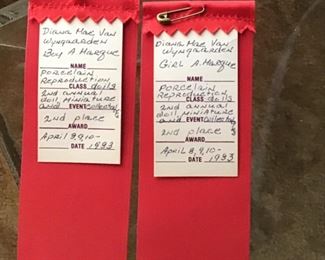 Diana Mae Van
Wyngaarden
Boy A. Marque
NAME
Porcelain
Reproduction
CLASS dolls
2nd annual
doll miniature
and EVENT collectors
2nd place
AWARD
April 8,9,10-
DATE 1993
Diana Mae Van
Wyngaarden
Girl A. Marque
NAME
Porcelain
Reproduction
CLASS dolls
2nd annual
doll miniature
and EVENT collectors
2nd place
AWARD
April 8,9,10-
DATE 1993